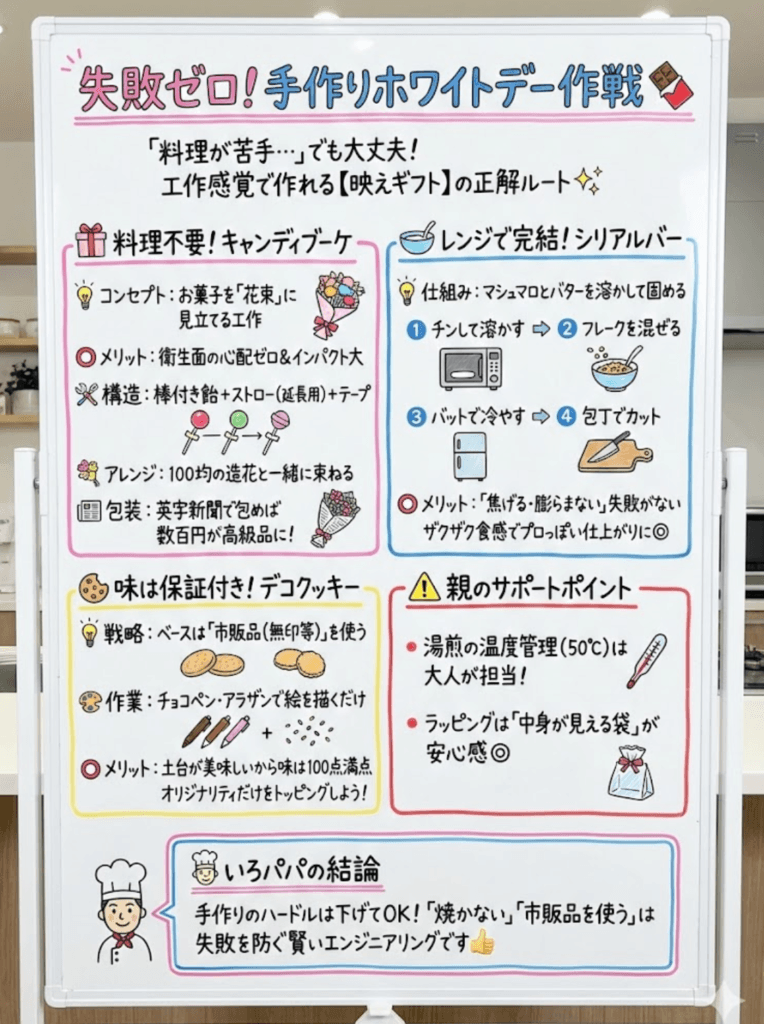 失敗ゼロ！手作りホワイトデー作戦
「料理が苦手…」でも大丈夫！
工作感覚で作れる【映えギフト】の正解ルート
料理不要！キャンディブーケ
コンセプト：お菓子を「花束」に
見立てる工作
メリット：衛生面の心配ゼロ＆インパクト大
構造：棒付き飴＋ストロー（延長用）＋テープ
アレンジ：100均の造花と一緒に束ねる
包装：英字新聞で包めば
数百円が高級品に！
レンジで完結！シリアルバー
仕組み：マシュマロとバターを溶かして固める
1 チンして溶かす ⇨ 2 フレークを混ぜる
3 バットで冷やす ⇨ 4 包丁でカット
メリット：「焦げる・膨らまない」失敗がない
ザクザク食感でプロっぽい仕上がりに◎
味は保証付き！デコクッキー
戦略：ベースは「市販品（無印等）」を使う
作業：チョコペン・アラザンで絵を描くだけ
+
メリット：土台が美味しいから味は100点満点
オリジナリティだけをトッピングしよう！
親のサポートポイント
• 湯煎の温度管理（50℃）は
大人が担当！
• ラッピングは「中身が見える袋」が
安心感◎
いろパパの結論
手作りのハードルは下げてOK！「焼かない」「市販品を使う」は
失敗を防ぐ賢いエンジニアリングです